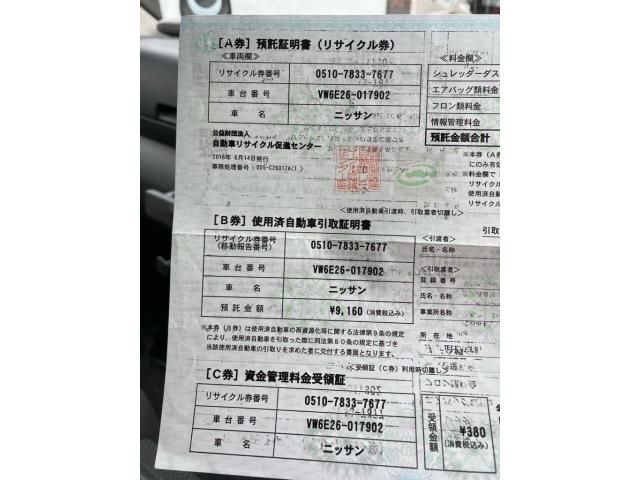 [A券] 預託証明書 (リサイクル券)
≪車両欄≫
リサイクル券番号 0510-7833-7677
車台番号 VW6E26-017902
車名 ニッサン
≪料金欄≫
シュレッダーダス
エアバッグ類料金
フロン類料金
情報管理料金
預託金額合計
公益財団法人
自動車リサイクル促進センター
2016年 6月14日発行
※本券 (A券
にのみ有効
※料金欄で
リサイクル
使用済自
リサイク
<使用済自動車引渡時、引取業者切離し>
[B券] 使用済自動車引取証明書
リサイクル券番号
(移動報告番号) 0510-7833-7677
車台番号 VW6E26-017902
車名 ニッサン
預託金額 ¥9,160 (消費税込み)
<引渡者>
氏名・名称
<引取業者>
登録番号
氏名・名称
事業所名
所在地
※本券 (B券) は使用済自動車の再資源化等に関する法律第9条の規定
により、使用済自動車を引取った際に同法第80条の規定に基づき
当該使用済自動車の引取りを求めた者に交付する書面となります。
<受領証 (C券) 利用時切離し>
[C券] 資金管理料金受領証
リサイクル券番号 0510-7833-7677
車台番号 VW6E26-017902
車名 ニッサン
受領金額 ¥380
(消費税込み)